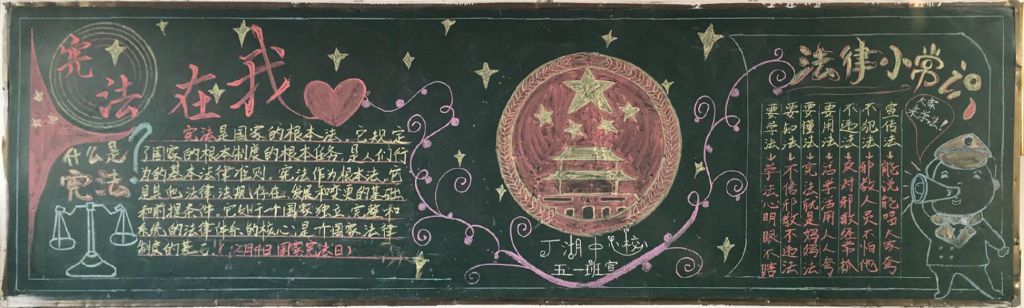 宪法在我
什么是
宪法?
宪法是国家的根本法,它规定
了国家的根本制度的根本任务,是人们行
为的基本法律准则。宪法作为根本法,它
是其他法律法规存在、发展和变更的基础
和前提条件。它处于个国家独立、完整和
系统的法律体系的核心,是一国家法律
制度的基石(12月4日国家宪法日)
丁湖中心校
五一班宣
法律小常识
大家
来学法!
宣传法↓能说能唱人人夸
不犯法↓邪教人员不怕他
不违法↓反对邪教经常抓
要用法↓活学活用人人夸
要懂法↓宪法就是妈妈法
要知法↓不信邪教不违法
要学法↓学法心明眼不瞎